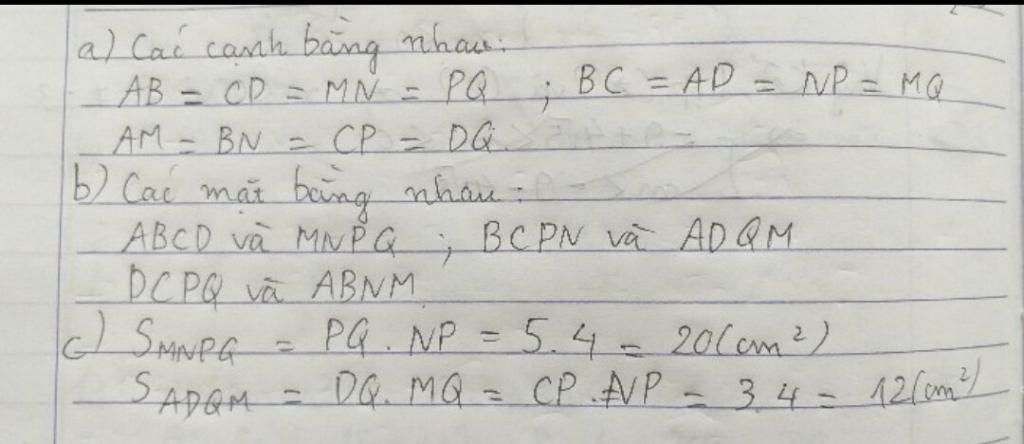 a) Các cạnh bằng nhau:
AB = CD = MN = PQ ; BC = AD = NP = MQ
AM = BN = CP = DQ.
b) Các mặt bằng nhau:
ABCD và MNPQ ; BCPN và ADQM
DCPQ và ABNM
c) SMNPQ = PQ . NP = 5.4 = 20(cm²)
SADQM = DQ. MQ = CP . NP = 3.4 = 12(cm²)